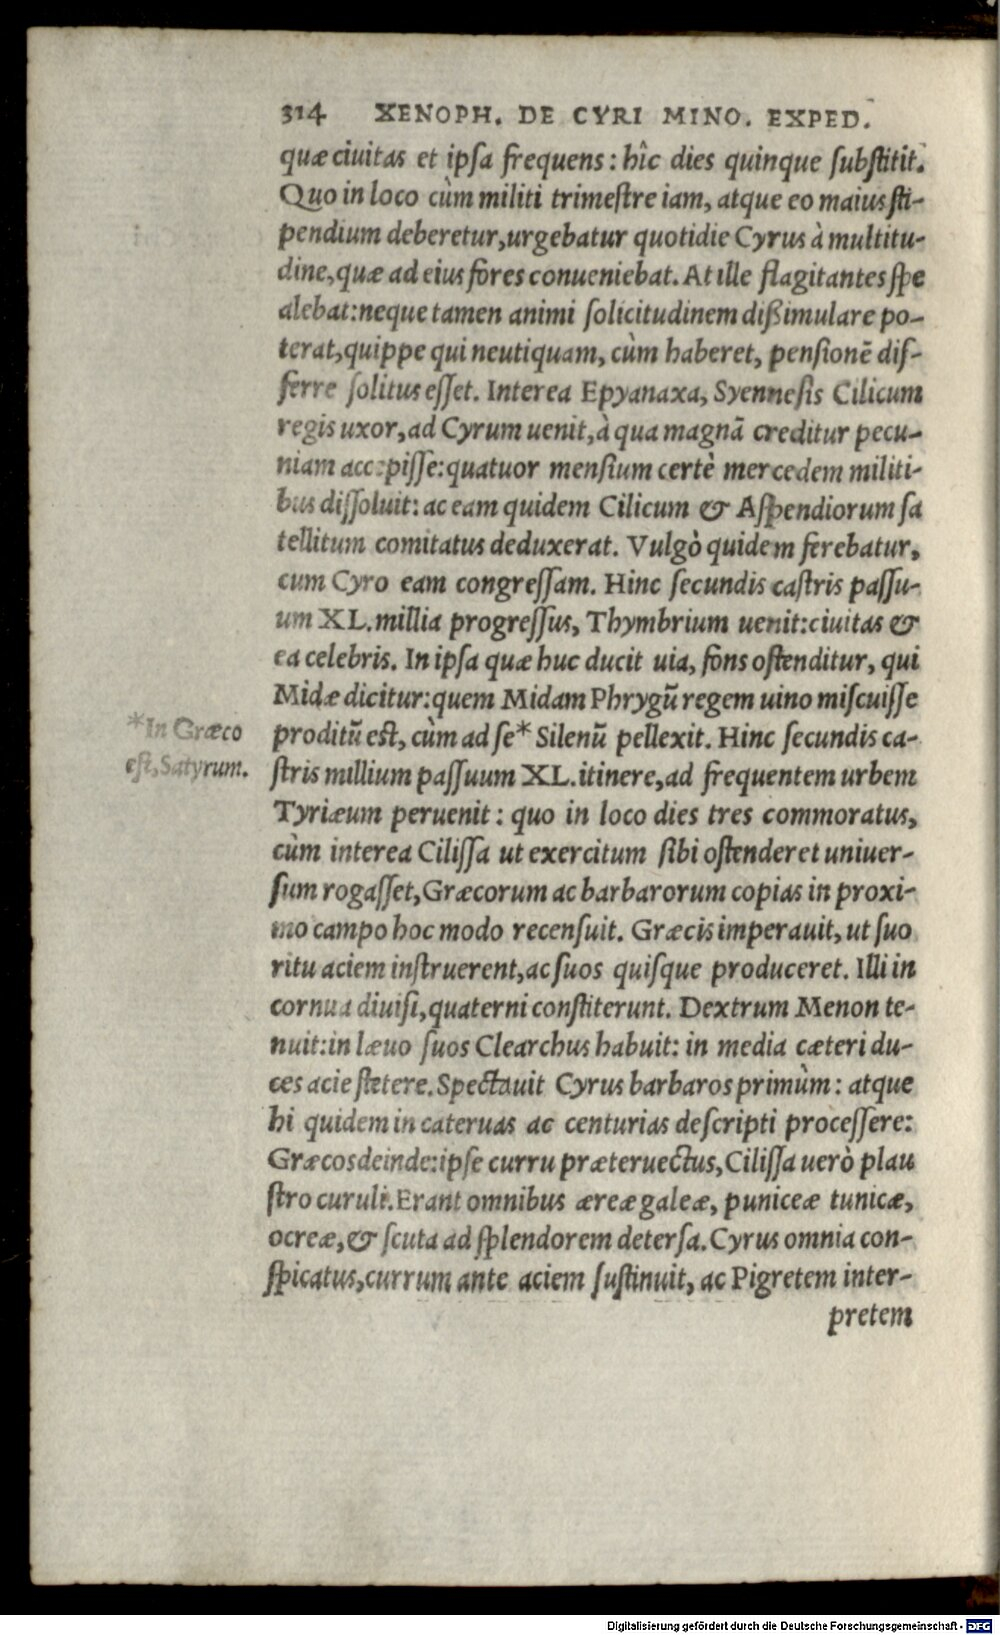 314 XENOPH. DE CYRI MINO. EXPED.
quæ ciuitas et ipsa frequens: hîc dies quinque substitit.
Quo in loco cùm militi trimestre iam, atque eo maius sti-
pendium deberetur, urgebatur quotidie Cyrus à multitu-
dine, quæ ad eius fores conueniebat. At ille flagitantes spe
alebat: neque tamen animi solicitudinem dißimulare po-
terat, quippe qui neutiquam, cùm haberet, pensionē dif-
ferre solitus esset. Interea Epyanaxa, Syennesis Cilicum
regis uxor, ad Cyrum uenit, à qua magnā creditur pecu-
niam accepisse: quatuor mensium certè mercedem militi-
bus dissoluit: ac eam quidem Cilicum & Aspendiorum sa
tellitum comitatus deduxerat. Vulgò quidem ferebatur,
cum Cyro eam congressam. Hinc secundis castris passu-
um XL. millia progressus, Thymbrium uenit: ciuitas &
ea celebris. In ipsa quæ huc ducit uia, fons ostenditur, qui
Midæ dicitur: quem Midam Phrygū regem uino miscuisse
*In Græco
est, Satyrum.
proditū est, cùm ad se* Silenū pellexit. Hinc secundis ca-
stris millium passuum XL. itinere, ad frequentem urbem
Tyriæum peruenit: quo in loco dies tres commoratus,
cùm interea Cilissa ut exercitum sibi ostenderet uniuer-
sum rogasset, Græcorum ac barbarorum copias in proxi-
mo campo hoc modo recensuit. Græcis imperauit, ut suo
ritu aciem instruerent, ac suos quisque produceret. Illi in
cornua diuisi, quaterni constiterunt. Dextrum Menon te-
nuit: in læuo suos Clearchus habuit: in media cæteri du-
ces acie stetere. Spectauit Cyrus barbaros primùm: atque
hi quidem in cateruas ac centurias descripti processere:
Græcos deinde: ipse curru præteruectus, Cilissa uerò plau
stro curuli. Erant omnibus æreæ galeæ, puniceæ tunicæ,
ocreæ, & scuta ad splendorem detersa. Cyrus omnia con-
spicatus, currum ante aciem sustinuit, ac Pigretem inter-
pretem
Digitalisierung gefördert durch die Deutsche Forschungsgemeinschaft - DFG